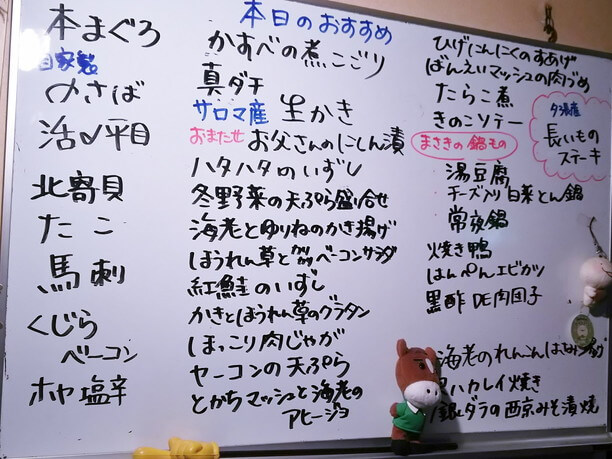 本日のおすすめ
本まぐろ
自家製
〆さば
活〆平目
北寄貝
たこ
馬刺
くじら
ベーコン
ホヤ塩辛
かすべの煮こごり
真ダチ
サロマ産 生かき
おまたせ お父さんのにしん漬
ハタハタのいずし
冬野菜の天ぷら盛り合せ
海老とゆりねのかき揚げ
ほうれん草とカリカリベーコンサラダ
紅鮭のいずし
かきとほうれん草のグラタン
ほっこり肉じゃが
ヤーコンの天ぷら
とかちマッシュと海老の
アヒージョ
ひげにんにくのすあげ
ばんえいマッシュの肉づめ
たらこ煮
きのこソテー
まさきの鍋もの
湯豆腐
チーズ入り白菜とん鍋
常夜鍋
焼き鴨
はんぺんエビカツ
黒酢DE肉団子
海老のれんこんはさみ揚げ
カレイ焼き
銀ダラの西京みそ漬焼
長いもの
ステーキ